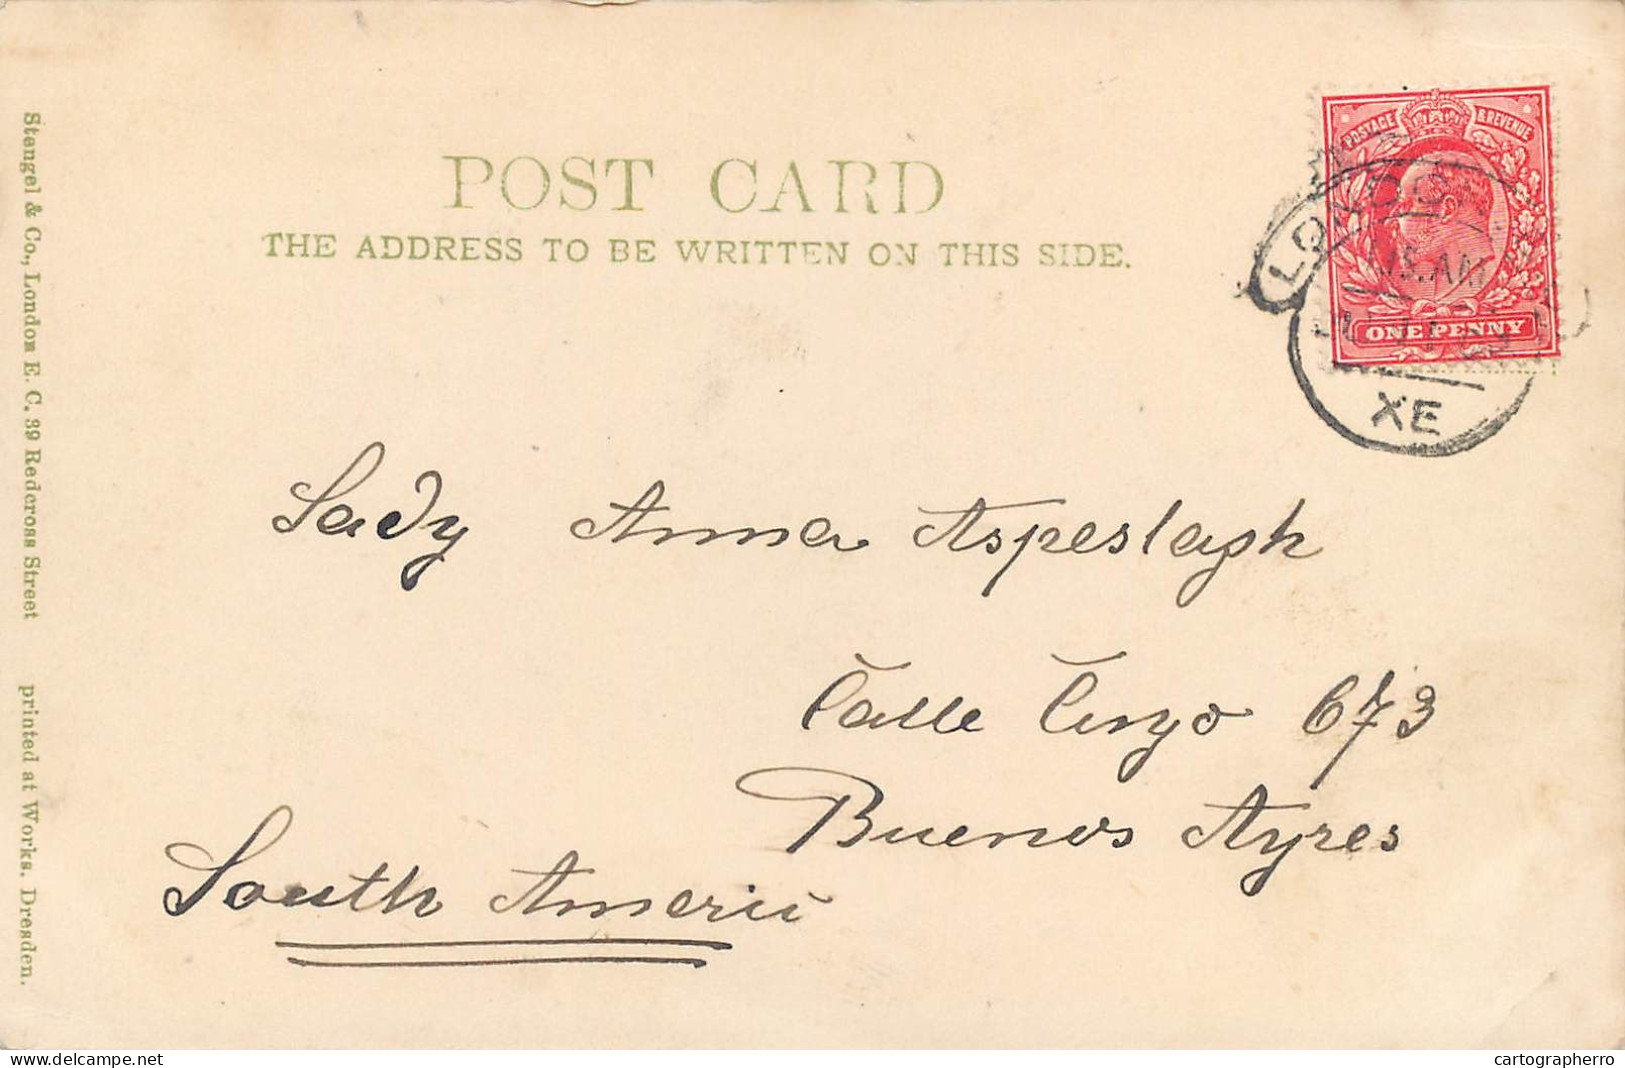 POST CARD
THE ADDRESS TO BE WRITTEN ON THIS SIDE.
POSTAGE & REVENUE
ONE PENNY
LONDON
15. AM
XE
Lady Anna Aspeslagh
Calle 673
Buenos Ayres
South Americ
Stengel & Co., London E. C. 39 Redcross Street printed at Works. Dresden.
www.delcampe.net
cartographerro